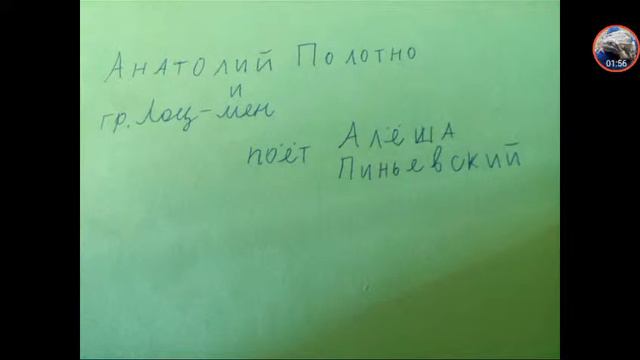 Анатолий Полотно
и
гр. Лоц-мен
поёт Алёша
Пиньевский
01:56